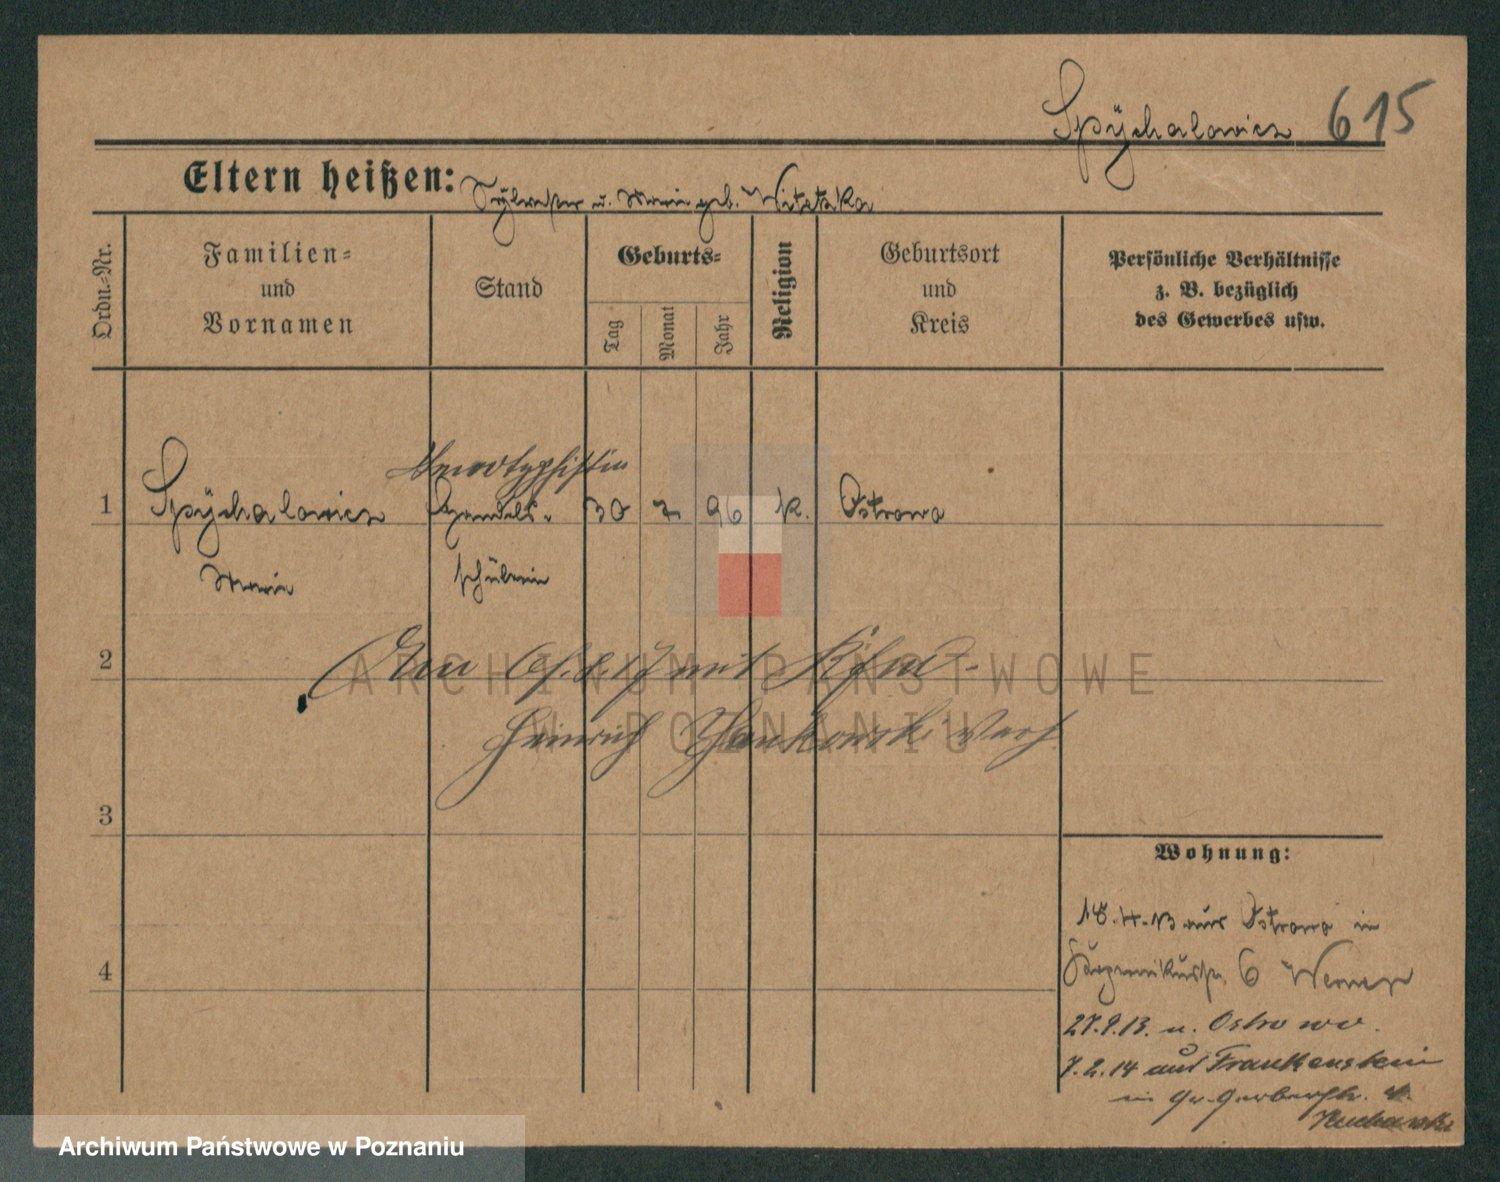 Spÿchalowicz 615
Eltern heißen: Sylvester u. Marie geb. Witetzka
Ordn.=Nr.
Familien=
und
Vornamen
Stand
Geburts=
Tag
Monat
Jahr
Religion
Geburtsort
und
Kreis
Persönliche Verhältnisse
z. B. bezüglich
des Gewerbes usw.
Stenotypistin
1 Spÿchalowicz Handels- 30 7. 96 k. Ostrowo
Marie schülerin
2
mit Kfm.
Heinrich
3
Wohnung:
18.4.13 aus Ostrowo in
6 Werner
4
27.9.13. n. Ostrowo.
7.2.14 aus Frankenstein
in Gr. Gerberstr.
ARCHIWUM PAŃSTWOWE
W POZNANIU
Archiwum Państwowe w Poznaniu